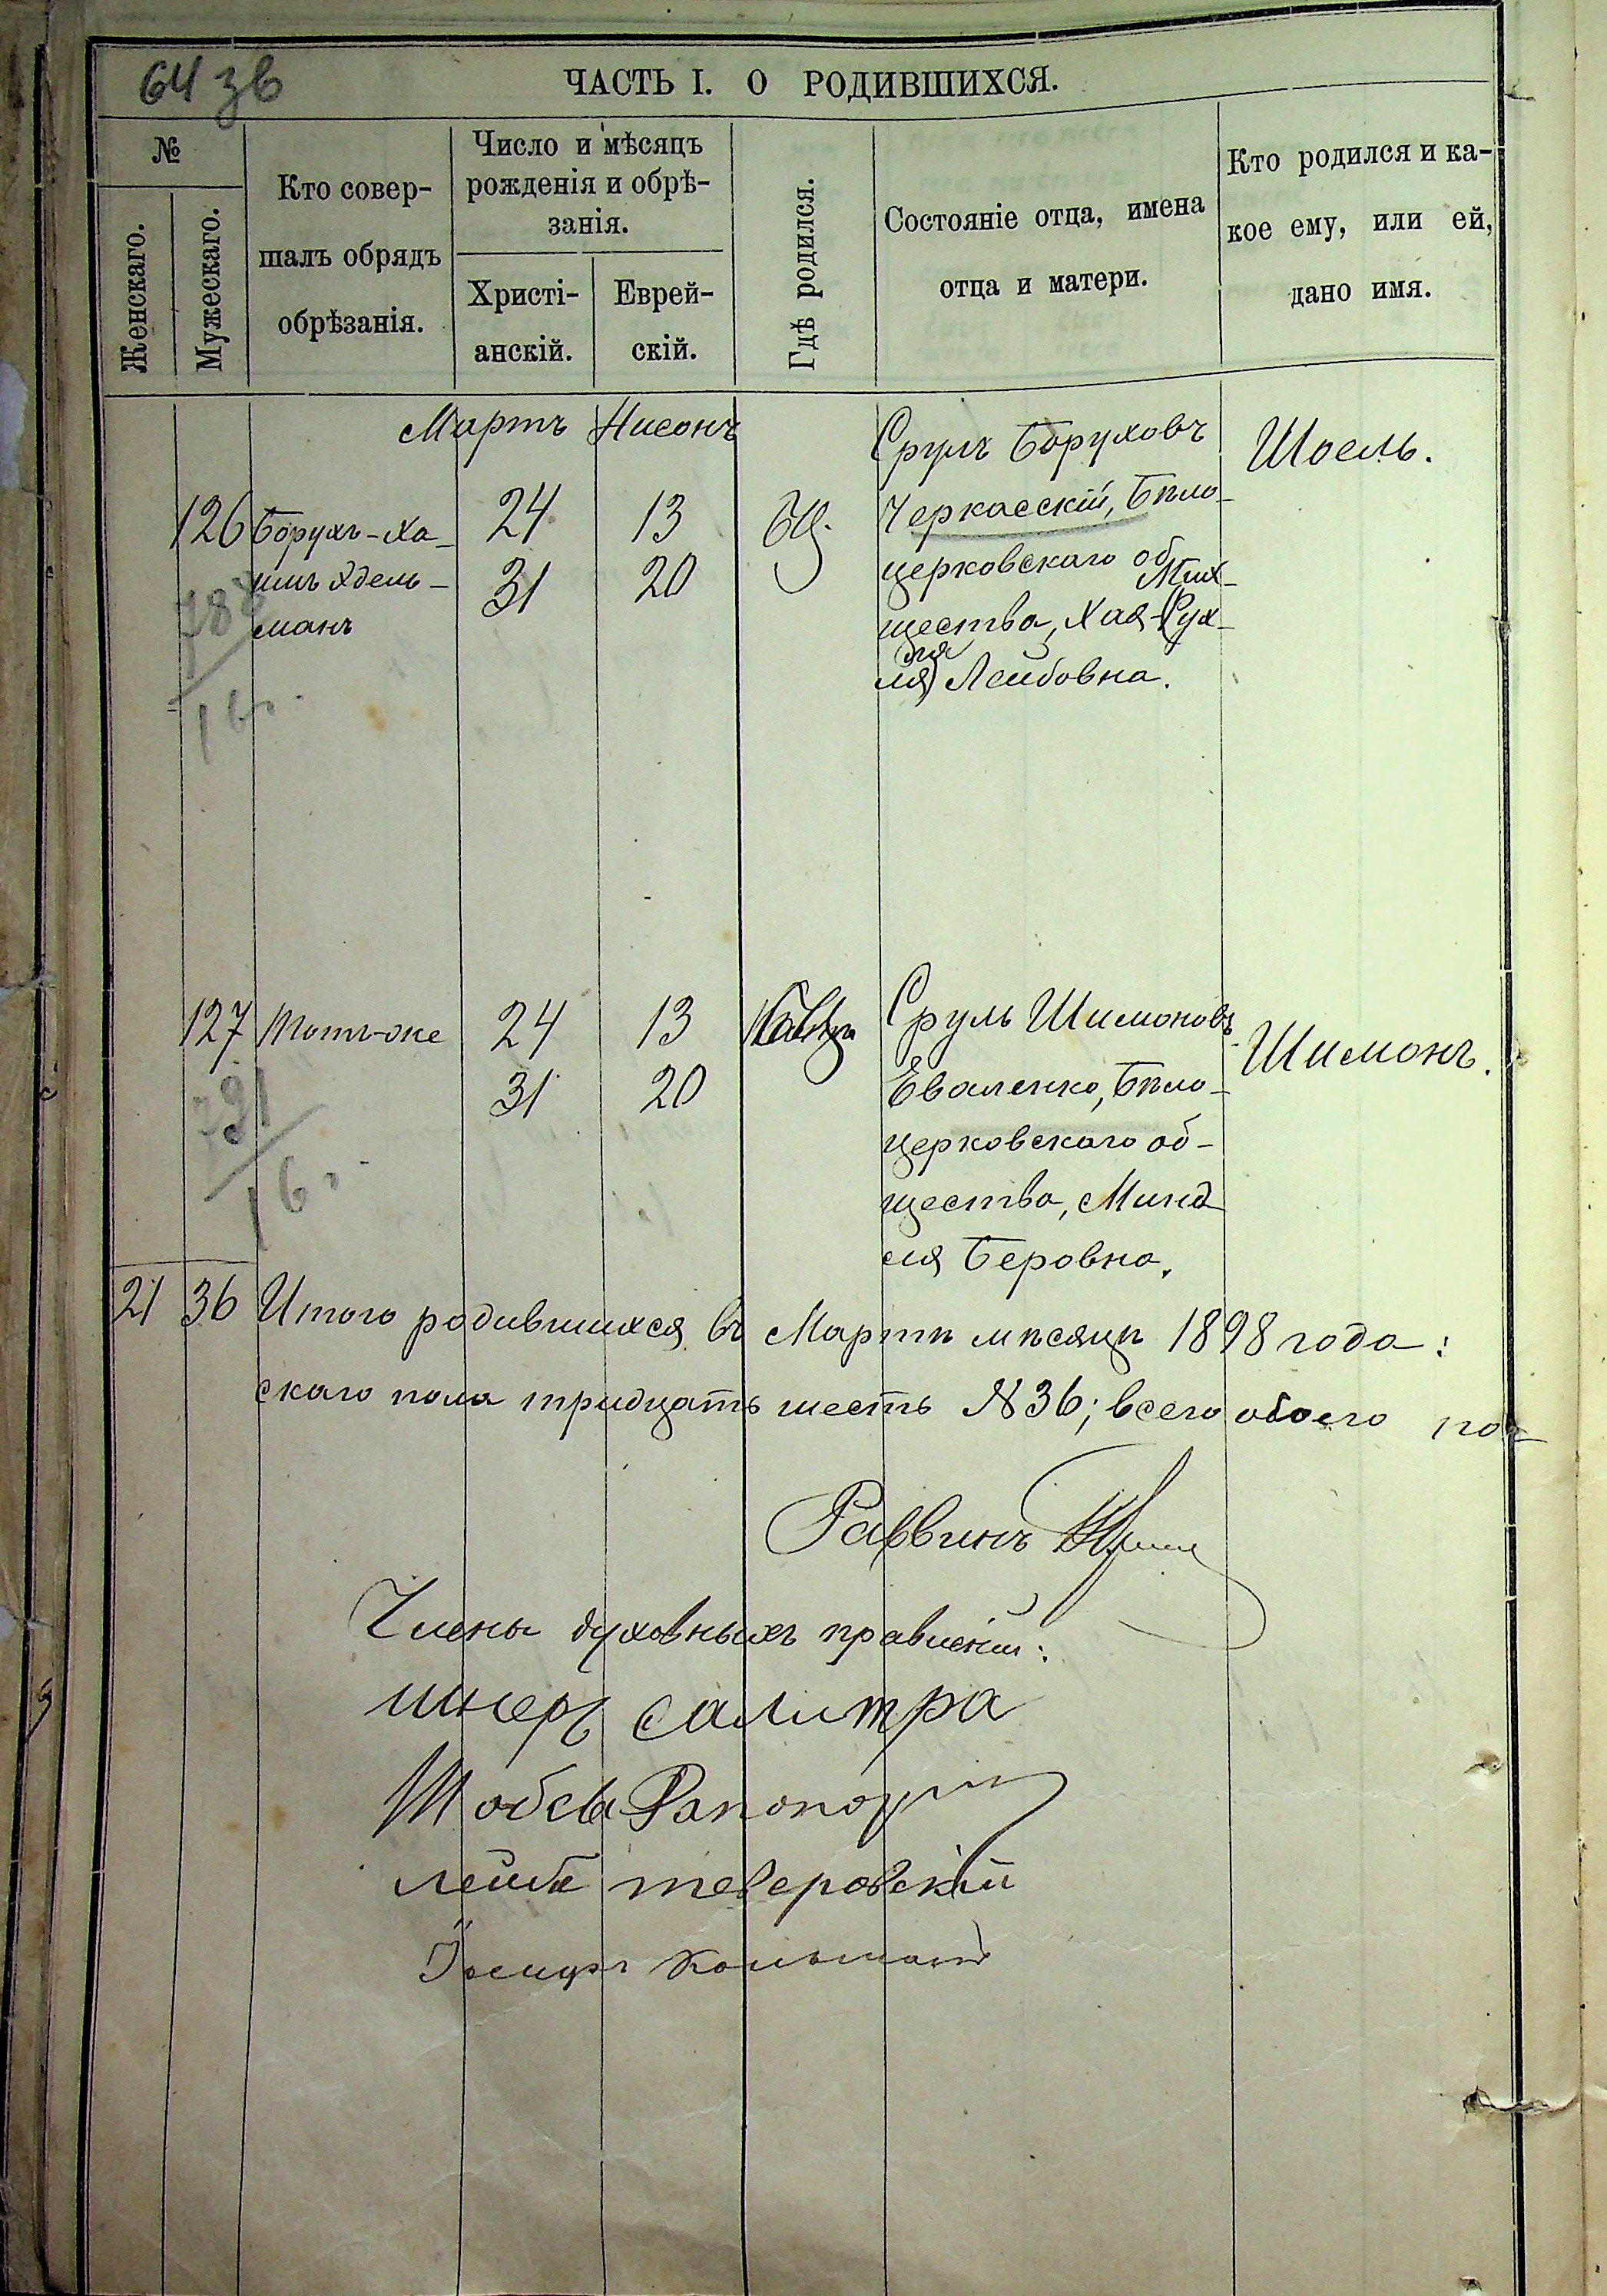 64 зв
ЧАСТЬ I. О РОДИВШИХСЯ.
№
Женскаго.
Мужескаго.
Кто совер-
шалъ обрядъ
обрѣзанія.
Число и мѣсяцъ
рожденія и обрѣ-
занія.
Христі-
анскій.
Еврей-
скій.
Гдѣ родился.
Состояніе отца, имена
отца и матери.
Кто родился и ка-
кое ему, или ей,
дано имя.
Мартъ Нисонъ
126 Борухъ-Ха-
имъ Эдель-
манъ
24 13
31 20
БЦ.
Сруль Боруховъ
Черкасскій, Бѣло-
церковскаго об
щества, Хая-Рух-
ля Лейбовна.
Шоель.
788
16.
127 Тотъ-же
24 13
31 20
Сруль Шимоновъ
Еваленко, Бѣло-
церковскаго об-
щества, Минд
ля Беровна.
Шимонъ.
791
16.
21 36 Итого родившихся въ Мартѣ мѣсяцѣ 1898 года:
скаго пола тридцать шесть №36; всего обоего по-
Раввинъ
Члены духовныхъ правленій:
шнеръ салитра
Рапопортъ
лейба тверовскій